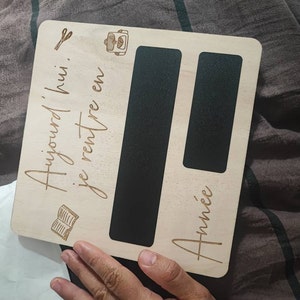 Aujourd'hui,
je rentre en
Année